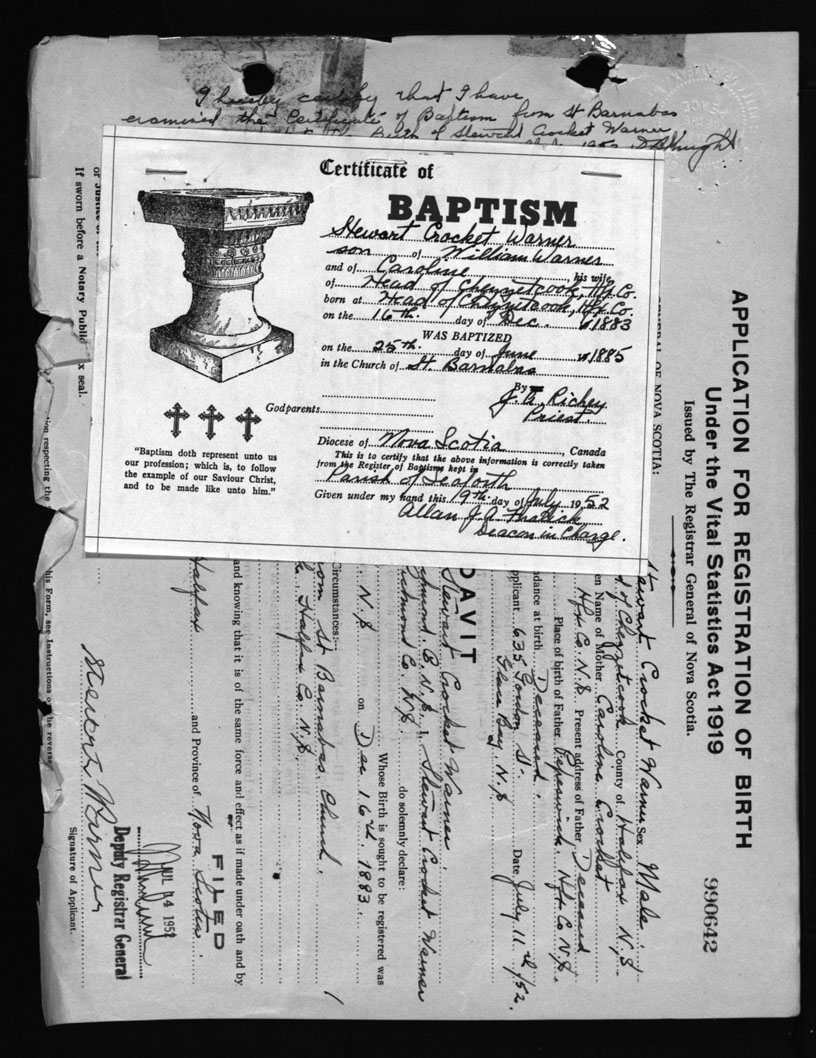 I hereby certify that I have
examined the Certificate of Baptism from St Barnabas
Birth of Stewart Crocket Warner
Certificate of
BAPTISM
Stewart Crocket Warner
son of William Warner
and of Caroline, his wife,
of Head of Chezzetcook, Hfx Co.
born at Head of Chezzetcook, Hfx Co.
on the 16th. day of Dec. 1883
WAS BAPTIZED
on the 25th. day of June 1885
in the Church of St. Barnabas
By
J. A. Richey
Priest.
Godparents
Diocese of Nova Scotia, Canada
This is to certify that the above information is correctly taken
from the Register of Baptisms kept in
Parish of Seaforth
Given under my hand this 19th. day of July 1952
Deacon in Charge.
"Baptism doth represent unto us
our profession; which is, to follow
the example of our Saviour Christ,
and to be made like unto him."
APPLICATION FOR REGISTRATION OF BIRTH
Under the Vital Statistics Act 1919
Issued by The Registrar General of Nova Scotia.
990642
GENERAL OF NOVA SCOTIA:
Stewart Crocket Warner Sex Male
of Chezzetcook County of Halifax N.S.
en Name of Mother Caroline Crocket
Hfx Co. N.S. Present address of Father Deceased
Place of birth of Father Hfx Co N.S.
ndance at birth Deceased
pplicant 635 Gordon St.
Glace Bay, N.S. Date July 11th /52.
DAVIT
Stewart Crocket Warner
Richmond Co. N.S. I, Stewart Crocket Warner
do solemnly declare:
Whose Birth is sought to be registered was
N.S. on Dec 16th. 1883.
Circumstances:
from St Barnabas Church,
Halifax Co. N.S.
and knowing that it is of the same force and effect as if made under oath and by
Halifax and Province of Nova Scotia.
FILED
JUL 14 1952
Deputy Registrar General
Stewart Warner
Signature of Applicant.
his Form, see Instructions on the reverse
tion respecting the
If sworn before a Notary Public
x seal.